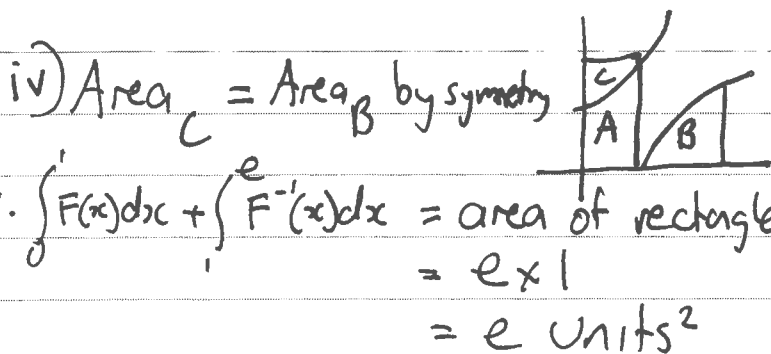 iv) Area_C = Area_B by symmetry
C
A
B
∴ ∫₀¹ F(x)dx + ∫₁ᵉ F⁻¹(x)dx = area of rectangle
= e × 1
= e units²